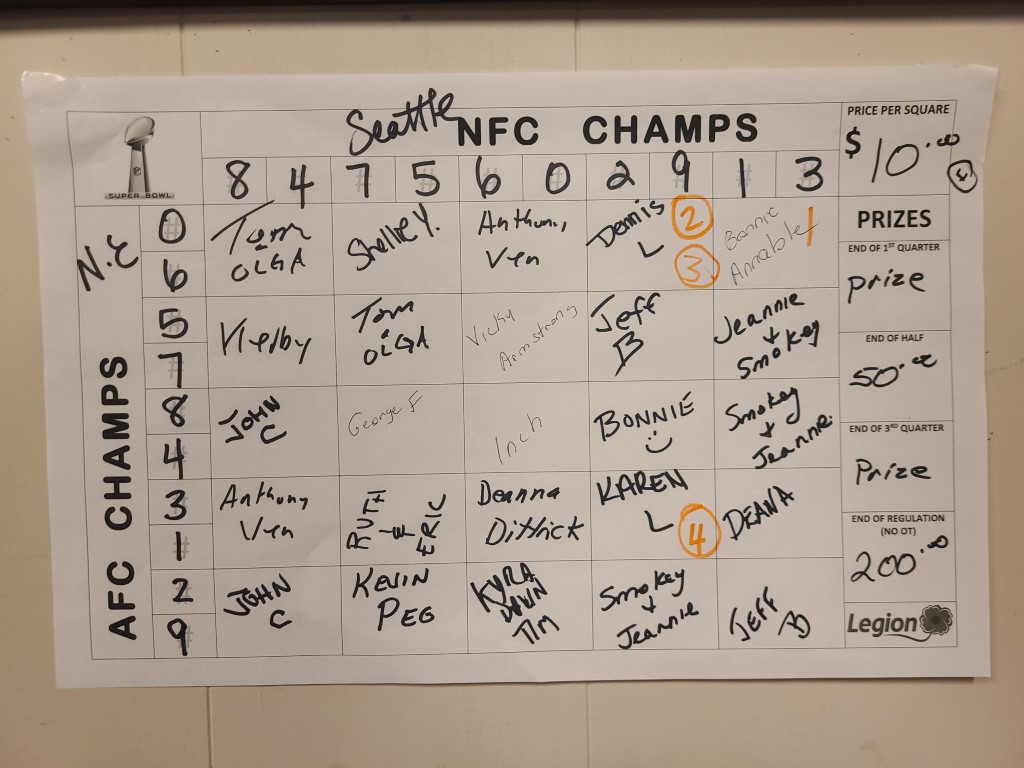 Seattle NFC CHAMPS
PRICE PER SQUARE
$ 10.00
SUPER BOWL
8 4 7 5 6 0 2 9 1 3
N.E
AFC CHAMPS
0
6
5
7
8
4
3
1
2
9
Tom
&
OLGA
Shellie Y.
Anthony
Ven
Dennis
L
2
3
Bonnie
Annable
1
Tom
&
OLGA
Vicky
Armstrong
Jeff
B
Jeannie
+
Smokey
JOHN
C
George F
Inch
BONNIE
Smokey
+
Jeannie
Anthony
Ven
RUTH
&
ERIC
Deanna
Dittrick
KAREN
L
4
DEANA
JOHN
C
KEVIN
PEG
KYRA
DAWN
TIM
Smokey
+
Jeannie
JEFF
B
PRIZES
END OF 1ST QUARTER
prize
END OF HALF
50.00
END OF 3RD QUARTER
Prize
END OF REGULATION
(NO OT)
200.00
Legion